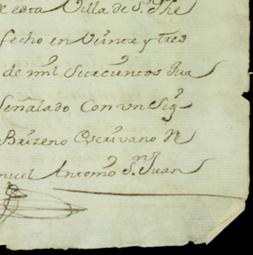 de esta Villa de S.n Phe
fecho en Veinte y tres
de mil Setecientos qua
Señalado Con Un Sig
Brizeno Escrivano R
nuel Antonio S.n Juan